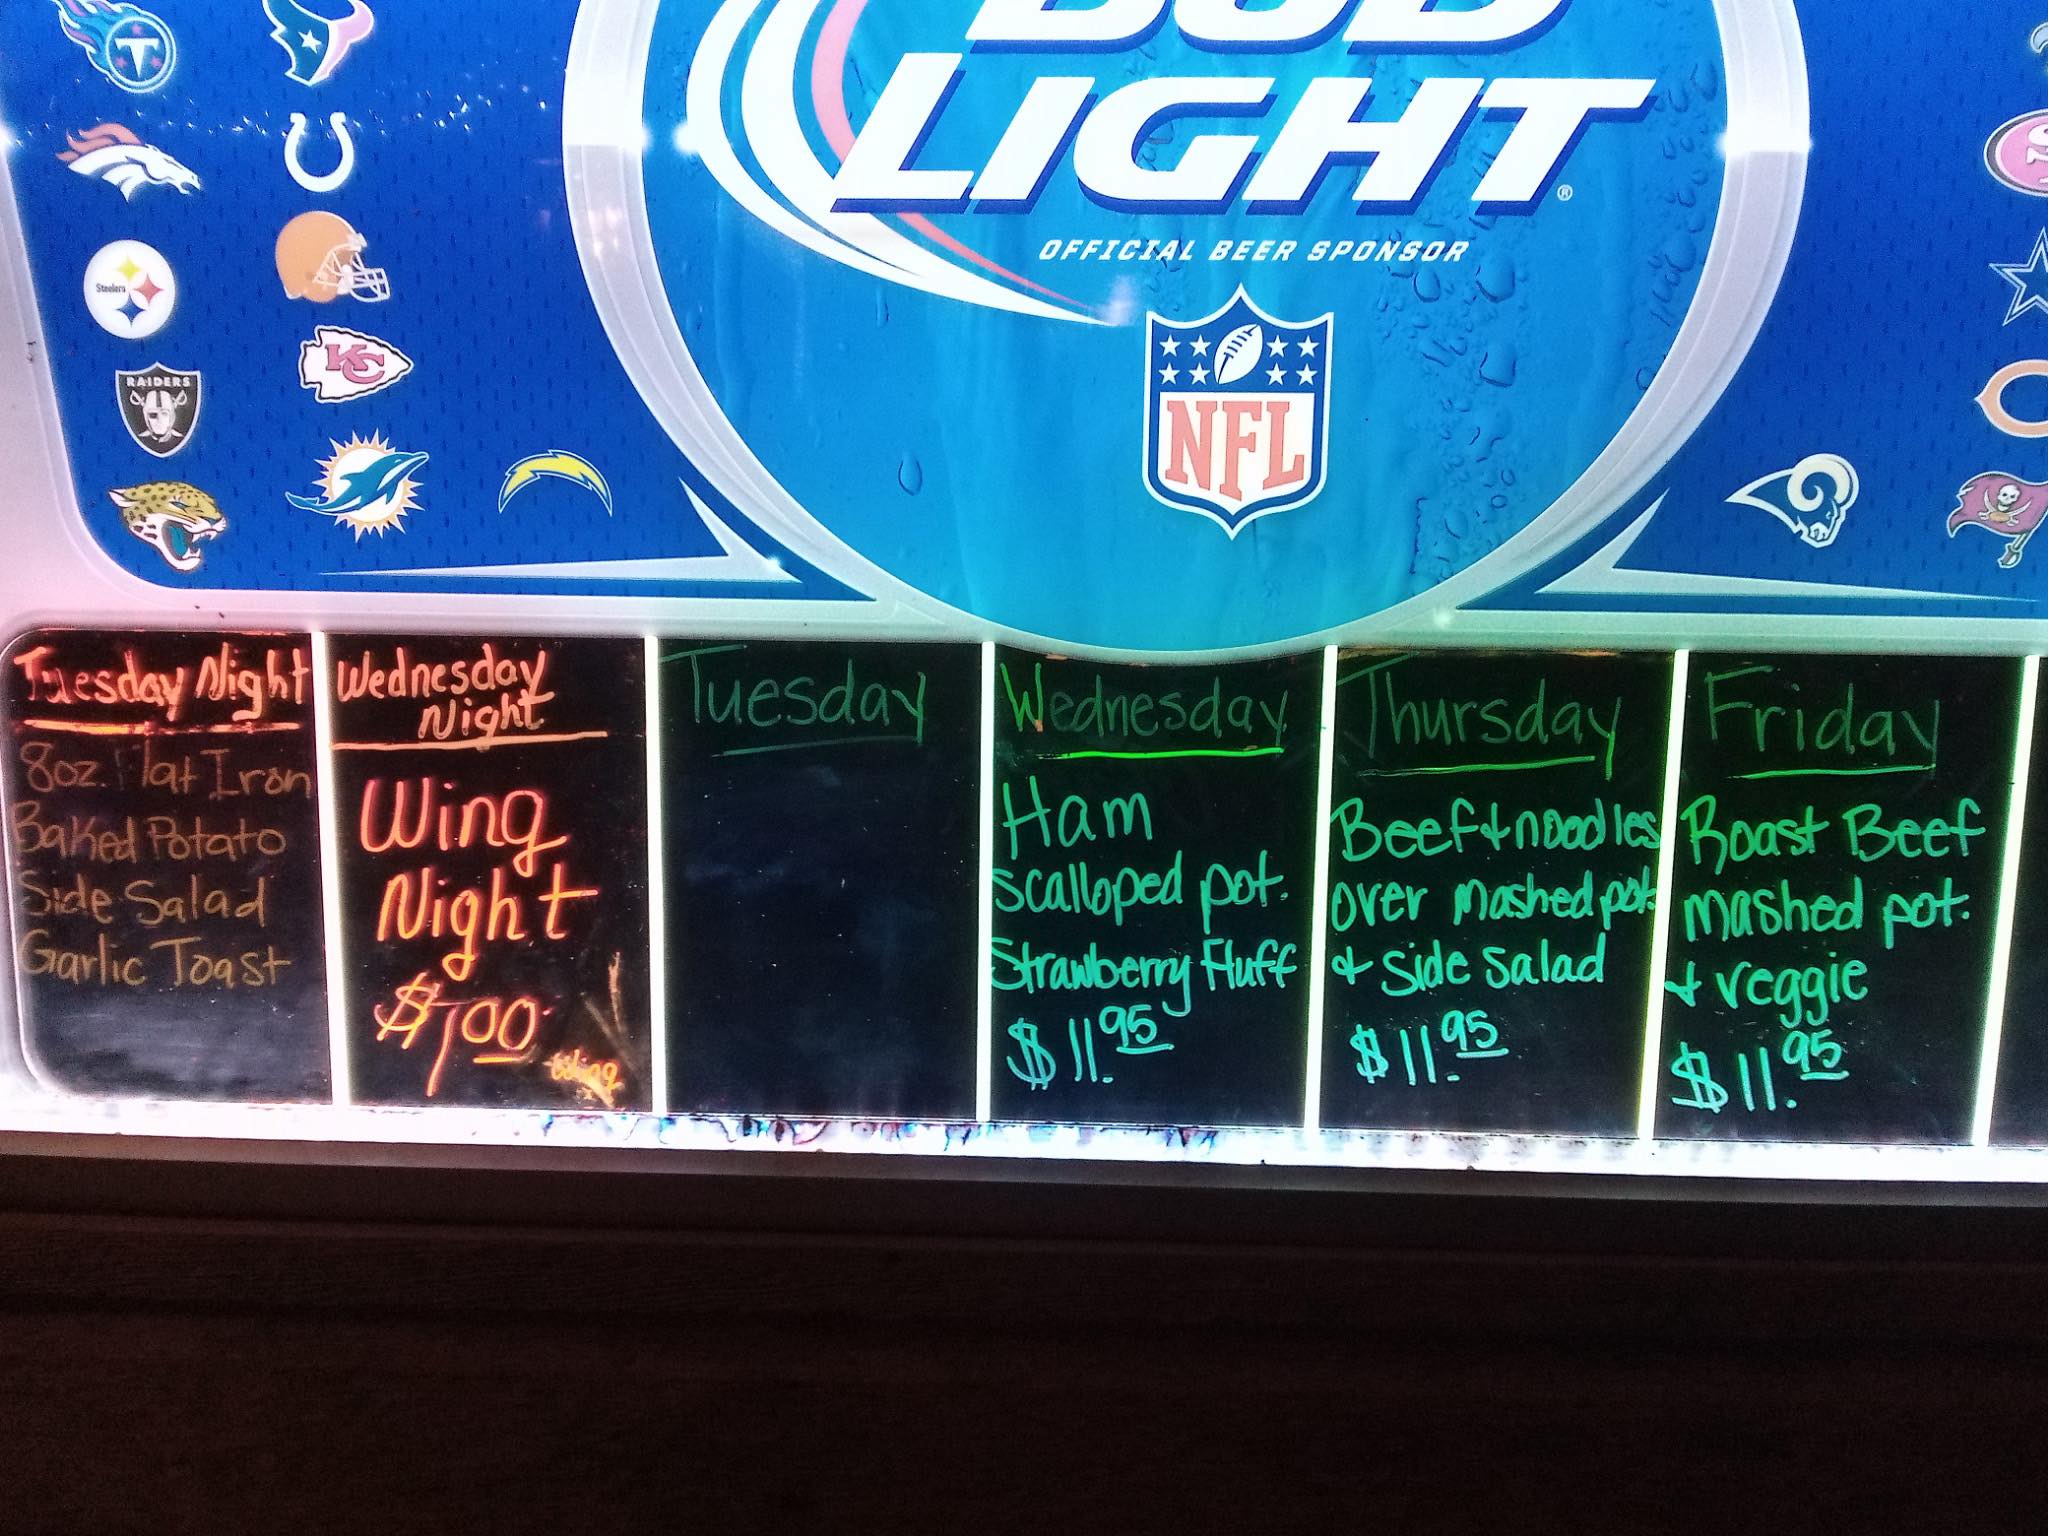 BUD
LIGHT®
OFFICIAL BEER SPONSOR
NFL
T
Steelers
KC
RAIDERS
Tuesday Night
8oz. Flat Iron
Baked Potato
Side Salad
Garlic Toast
Wednesday
Night
Wing
Night
$1.00
Tuesday
Wednesday
Ham
scalloped pot.
Strawberry Fluff
$11.95
Thursday
Beef + noodles
over mashed pot.
+ side salad
$11.95
Friday
Roast Beef
mashed pot.
+ veggie
$11.95